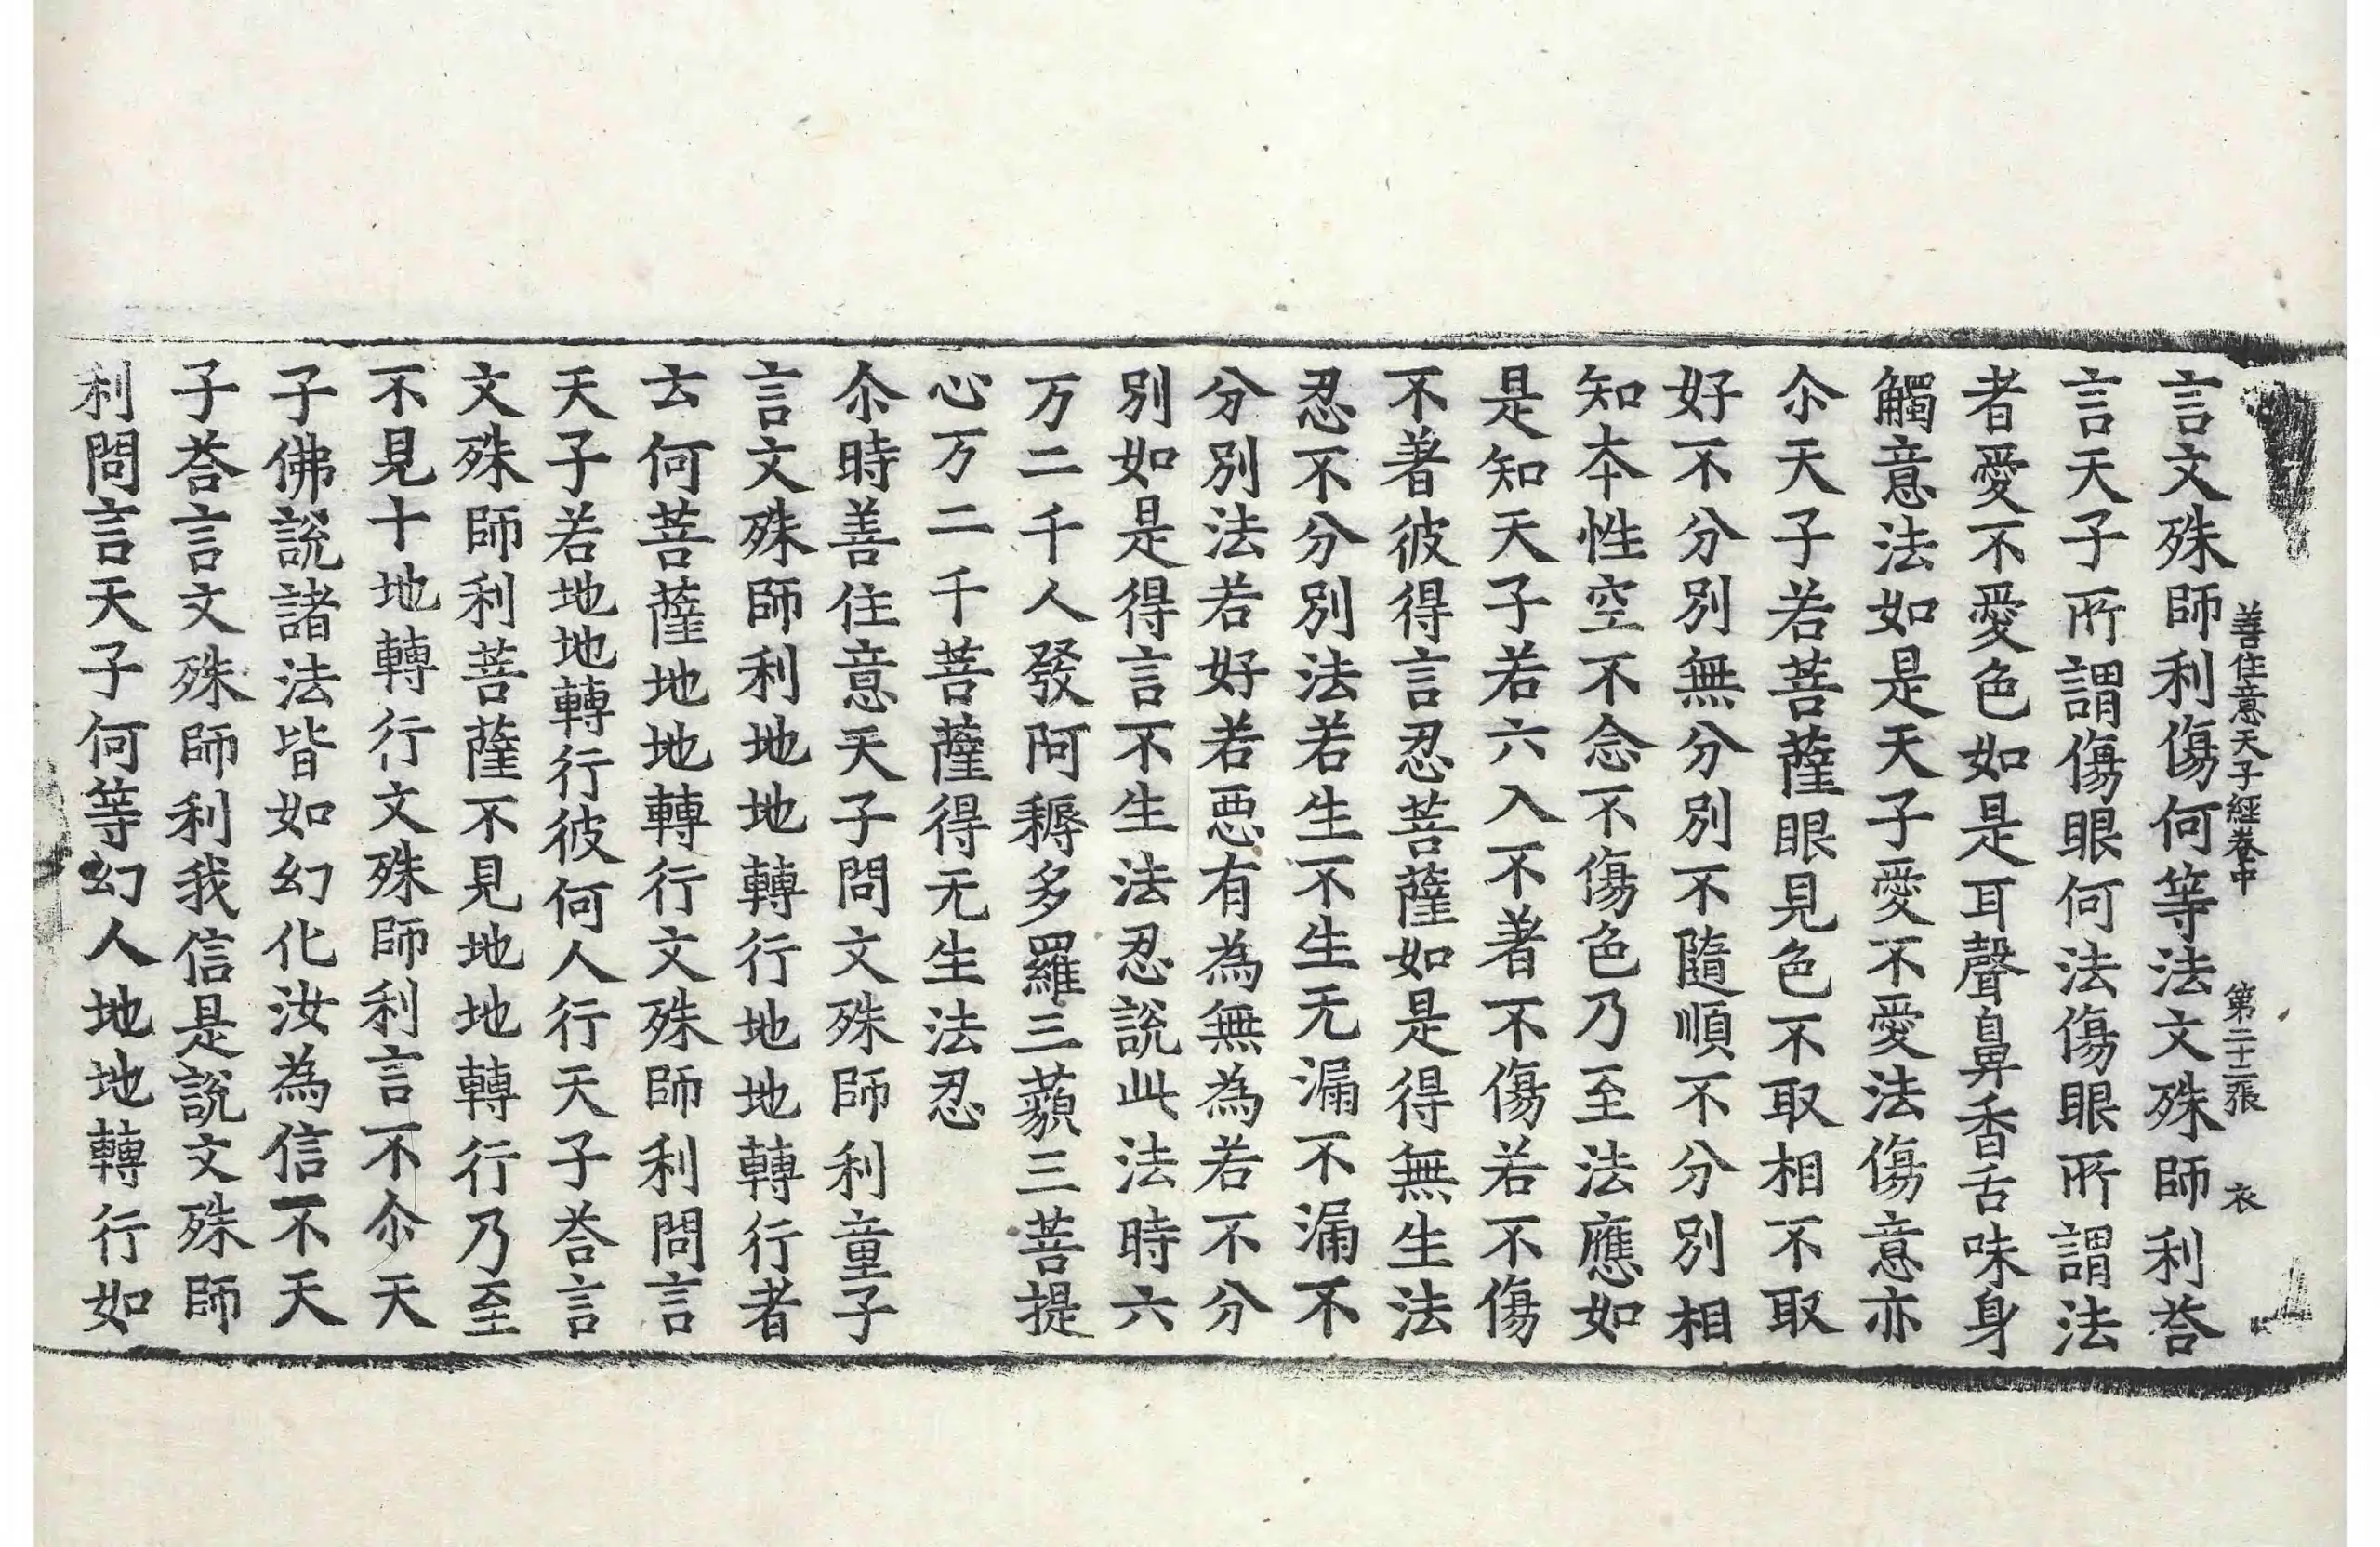 善住意天子經卷中 第二十三張 衣
言文殊師利傷何等法文殊師利荅
言天子所謂傷眼何法傷眼所謂法
者愛不愛色如是耳聲鼻香舌味身
觸意法如是天子愛不愛法傷意亦
尒天子若菩薩眼見色不取相不取
好不分別無分別不隨順不分別相
知本性空不念不傷色乃至法應如
是知天子若六入不著不傷若不傷
不著彼得言忍菩薩如是得無生法
忍不分別法若生不生无漏不漏不
分別法若好若惡有為無為若不分
別如是得言不生法忍說此法時六
万二千人發阿耨多羅三藐三菩提
心万二千菩薩得无生法忍
尒時善住意天子問文殊師利童子
言文殊師利地地轉行地地轉行者
云何菩薩地地轉行文殊師利問言
天子若地地轉行彼何人行天子荅言
文殊師利菩薩不見地地轉行乃至
不見十地轉行文殊師利言不尒天
子佛說諸法皆如幻化汝為信不天
子荅言文殊師利我信是說文殊師
利問言天子何等幻人地地轉行如